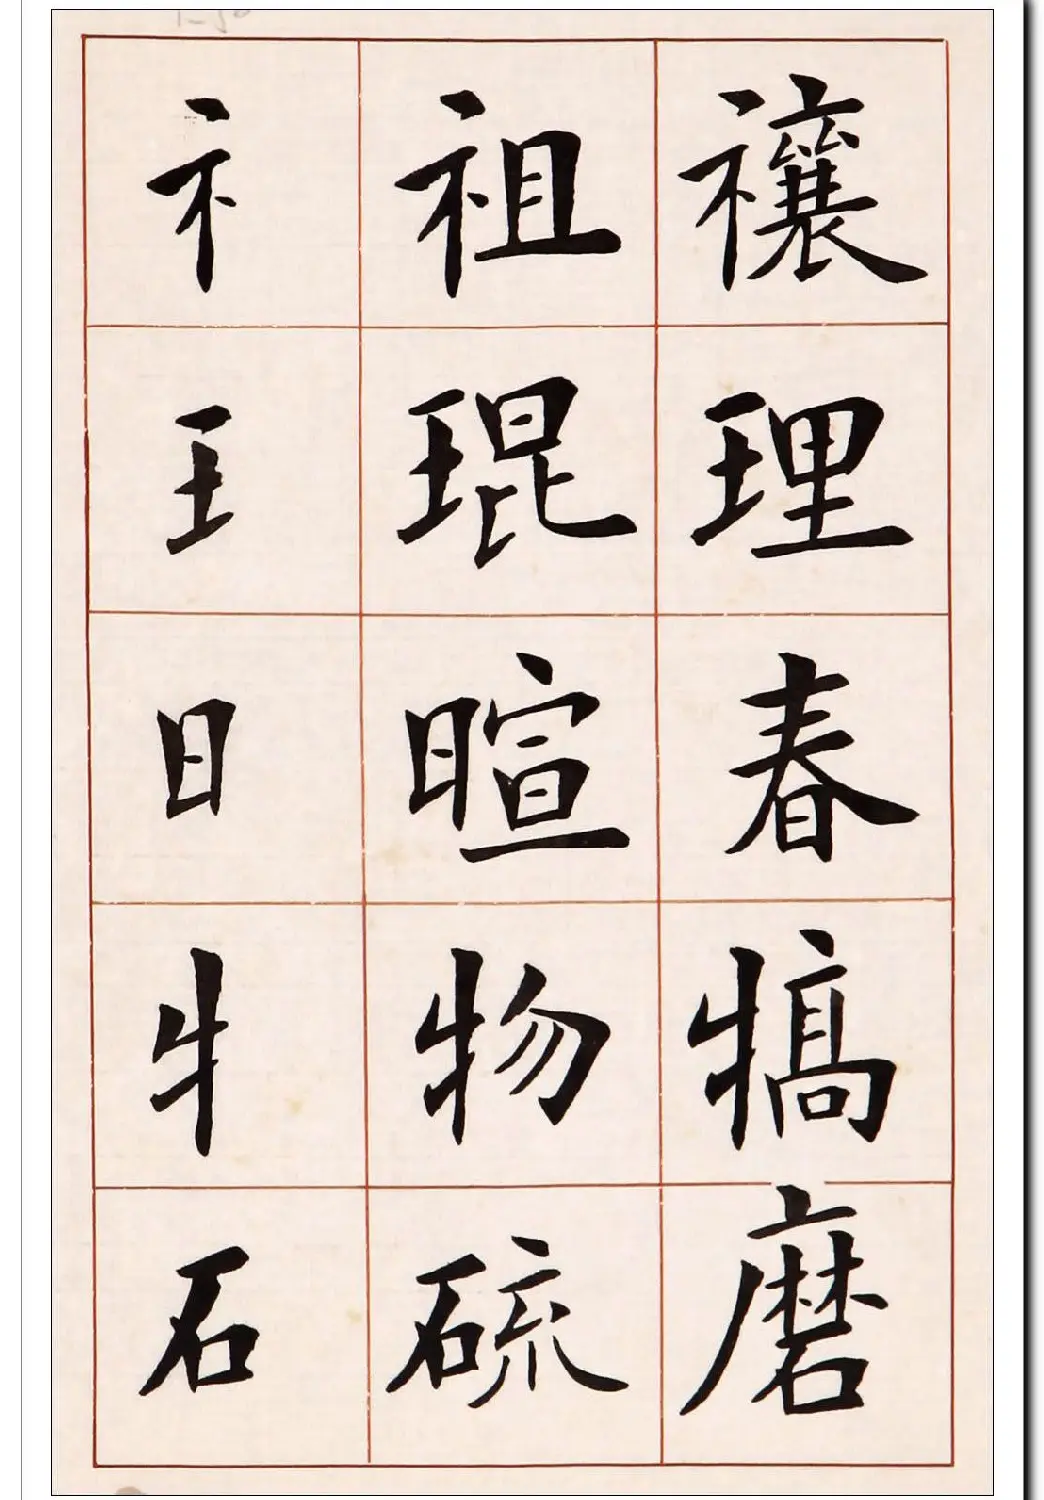 礻 祖 禳
王 琨 理
日 暄 春
牜 物 犒
石 硫 磨